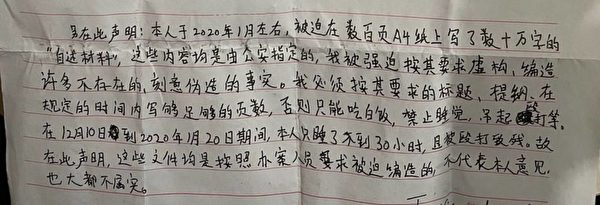 另在此声明：本人于2020年1月左右，被迫在数百页A4纸上写了数十万字的
“自述材料”，这些内容均是由公安指定的，我被强迫按其要求虚构、编造
许多不存在的，刻意伪造的事实。我必须按其要求的标题、提纲、在
规定的时间内写够足够的页数，否则只能吃白饭，禁止睡觉，吊起殴打等。
在12月10日到2020年1月20日期间，本人只睡了不到30小时，且被殴打致残。故
在此声明，这些文件均是按照办案人员要求被迫编造的，不代表本人意见，
也大都不属实。